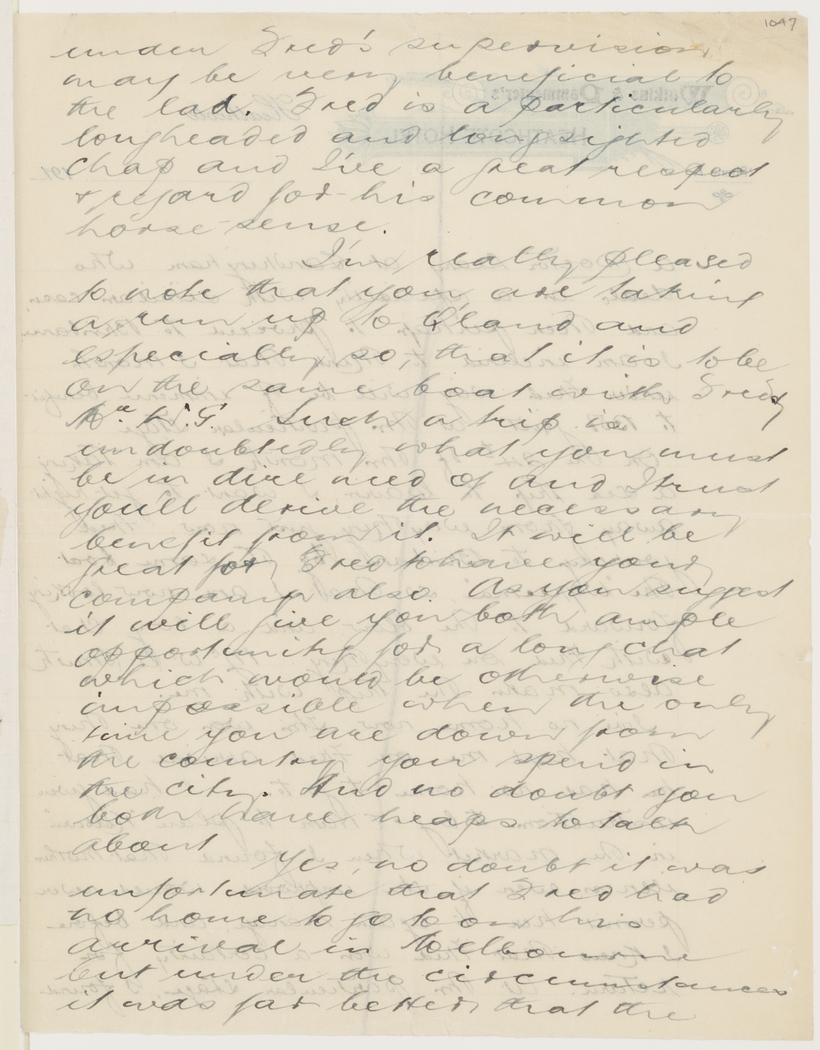 1097
under Fred's supervision,
may be very beneficial to
the lad. Fred is a particularly
longheaded and long sighted
chap and I've a great respect
& regard for his common
horse-sense.
I'm really pleased
to note that you are taking
a run up to Qland and
especially so, that it is to be
on the same boat with Fred,
W.G. Such a trip is
undoubtedly what you must
be in dire need of and I trust
you'll derive the necessary
benefit from it. It will be
great for Fred to have your
company also. As you suggest
it will give you both ample
opportunity for a long chat
which would be otherwise
impossible when the only
time you are down from
the country your spend in
the city. And no doubt you
both have heaps to talk
about
Yes, no doubt it was
unfortunate that Fred had
no home to go to on his
arrival in Melbourne
but under the circumstances
it was far better, that the